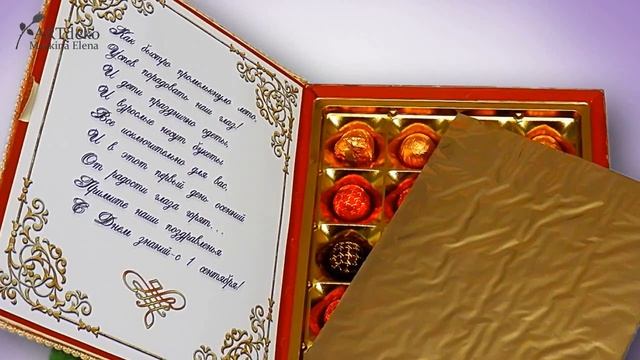 ARTdeko
Markina Elena
Как быстро промелькнуло лето,
Успев порадовать наш глаз!
И дети празднично одеты,
И взрослые несут букеты
Все исключительно для вас,
И в этот первый день осенний
От радости глаза горят...
Примите наши поздравленья
С Днем знаний-с 1 сентября!